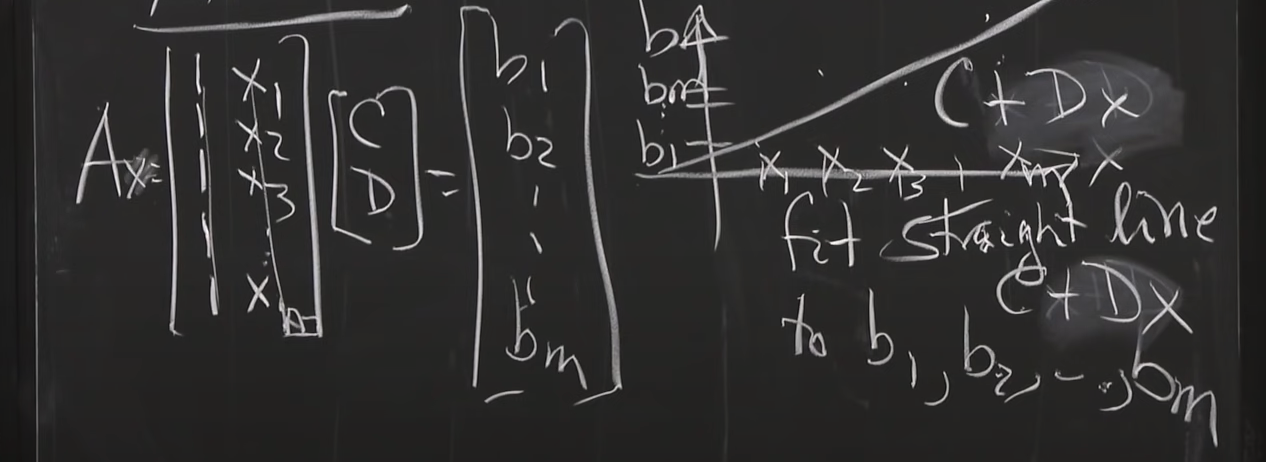 Ax = [1 x1; 1 x2; 1 x3; 1; 1 xm] [C; D] = [b1; b2; ⋮; bm]
b
bm
b1
C + Dx
x1 x2 x3 , xm x
fit straight line
C + Dx
to b1, b2, - ., bm